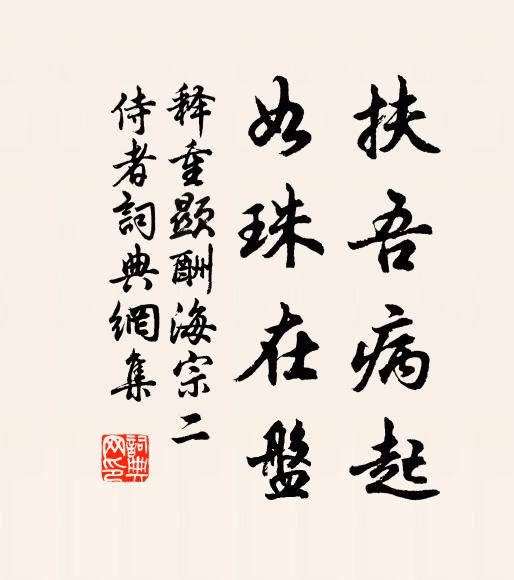 扶吾病起
如珠在盤
释重顯酬海宗二
侍者詞典網集
詞典网印